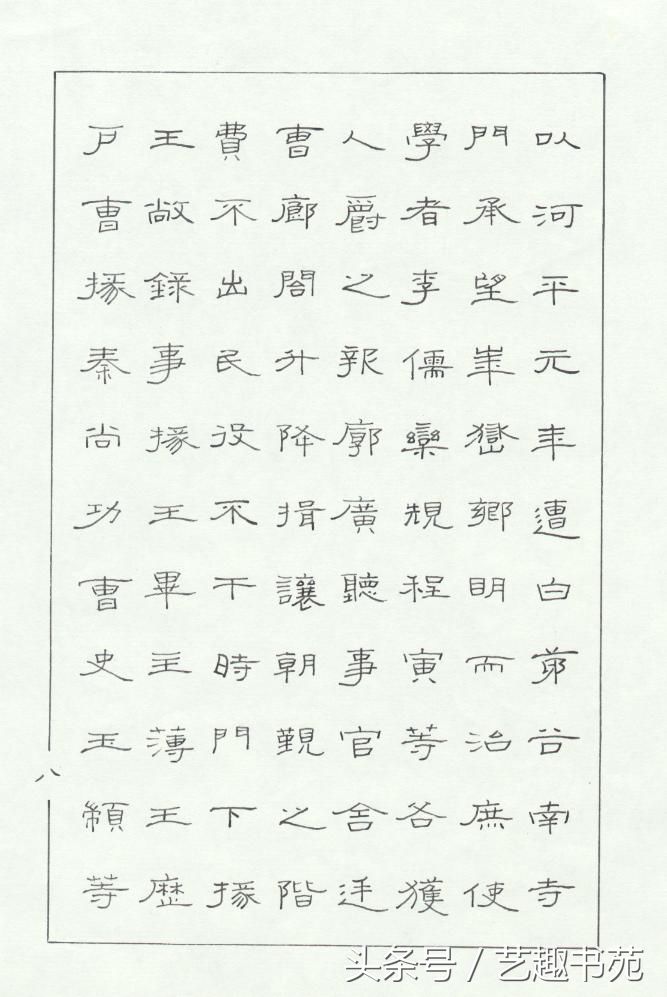 以河平元年遭白茅谷南寺
門承望華嶽鄉明而治庶使
學者李儒欒規程寅等各獲
人爵之報廓廣聽事官舍廷
曹廊閣升降揖讓朝覲之階
費不出民役不干時門下掾
王敞錄事掾王畢主薄王歷
戶曹掾秦尚功曹史王顓等
八
头条号 / 艺趣书苑